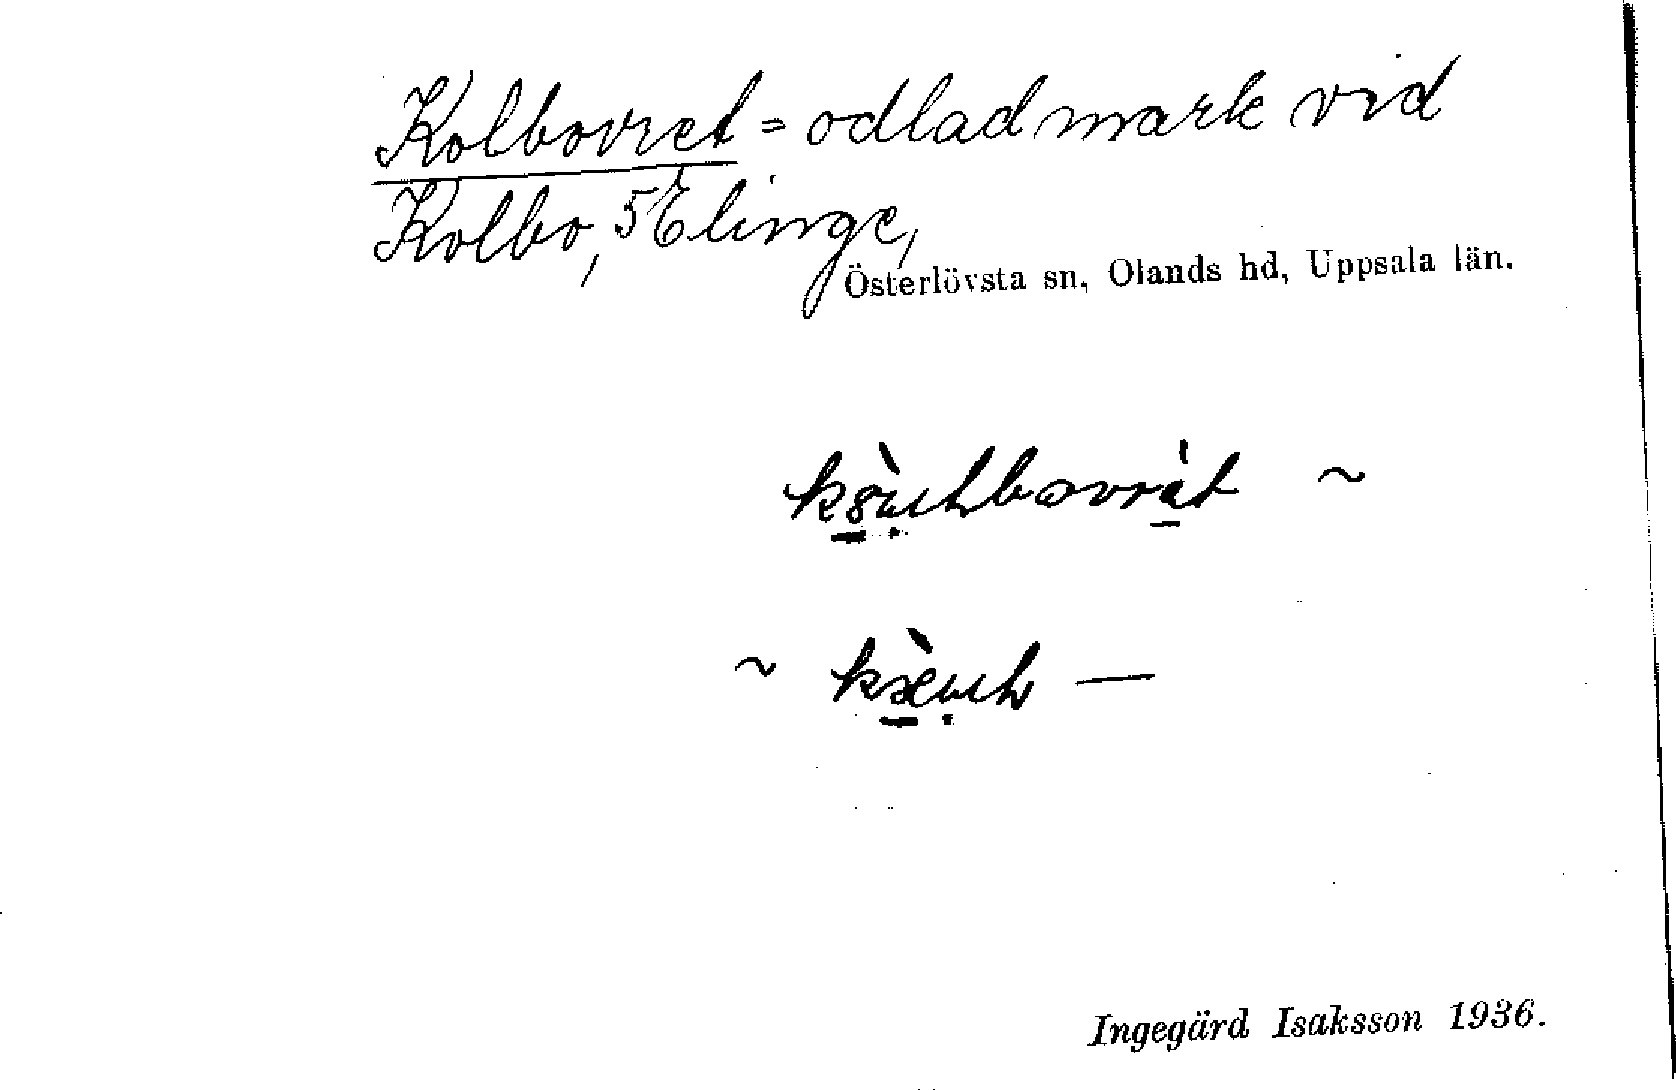 Kolbovret = odlad mark vid
Kolbo, 5 Elinge,
Österlövsta sn, Olands hd, Uppsala län.
~
~ —
Ingegärd Isaksson 1936.